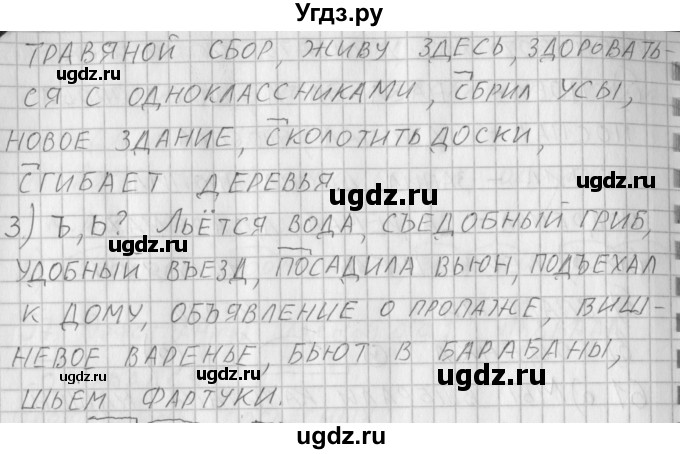 Угдз.ру
ТРАВЯНОЙ СБОР, ЖИВУ ЗДЕСЬ, ЗДОРОВАТЬ-
gdz.ru
ugdz.ru
СЯ С ОДНОКЛАССНИКАМИ, СБРИЛ УСЫ,
ugdz.ru
НОВОЕ ЗДАНИЕ, СКОЛОТИТЬ ДОСКИ,
СГИБАЕТ ДЕРЕВЬЯ
ugdz.ru
ugdz.ru
3) Ъ, Ь? ЛЬЁТСЯ ВОДА, СЪЕДОБНЫЙ ГРИБ,
ugdz.ru
ugdz.ru
УДОБНЫЙ ВЪЕЗД, ПОСАДИЛА ВЬЮН, ПОДЪЕХАЛ
ugdz.ru
К ДОМУ, ОБЪЯВЛЕНИЕ О ПРОПАЖЕ, ВИШ-
НЕВОЕ ВАРЕНЬЕ, БЬЮТ В БАРАБАНЫ,
ugdz.ru
ugdz.ru
ugdz.ru
ШЬЕМ ФАРТУКИ.
ugdz.ru